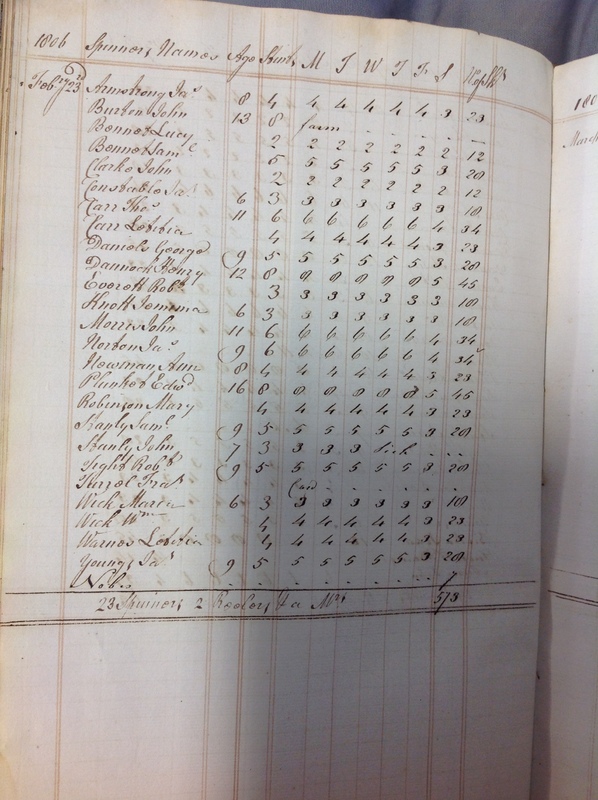 1806 Spinners Names Age Stint M T W T F S
Feby 17d 23d Armstrong Jas 8 4 4 4 4 4 4 3 23
Burton John 13 8 farm - - - - -
Bennet Lucy 2 2 2 2 2 2 2 12
Bennet Saml 5 5 5 5 5 5 3 28
Clarke John 2 2 2 2 2 2 2 12
Constable Jas 6 3 3 3 3 3 3 3 18
Carr Thos 11 6 6 6 6 6 6 4 34
Carr Letitia 4 4 4 4 4 4 3 23
Daniels George 9 5 5 5 5 5 5 3 28
Dannock Henry 12 8 8 8 8 8 8 5 45
Everett Robt 3 3 3 3 3 3 3 18
Knott Jemima 6 3 3 3 3 3 3 3 18
Morris John 11 6 6 6 6 6 6 4 34
Norton Jas 9 6 6 6 6 6 6 4 34
Newman Ann 8 4 4 4 4 4 4 3 23
Plunket Edwd 16 8 8 8 8 8 8 5 45
Robinson Mary 4 4 4 4 4 4 3 23
Stanly Saml 9 5 5 5 5 5 5 3 28
Stanly John 7 3 3 3 3 Sick - -
Tight Robt 9 5 5 5 5 5 5 3 28
Fras - - - - -
Wick Maria 6 3 3 3 3 3 3 3 18
Wick Wm 4 4 4 4 4 4 3 23
Warnes Letitia 4 4 4 4 4 4 3 23
Youngs Jas 9 5 5 5 5 5 5 3 28
- - - - - - 7
23 Spinners 2 Reelers & a Mrs 573
180
March